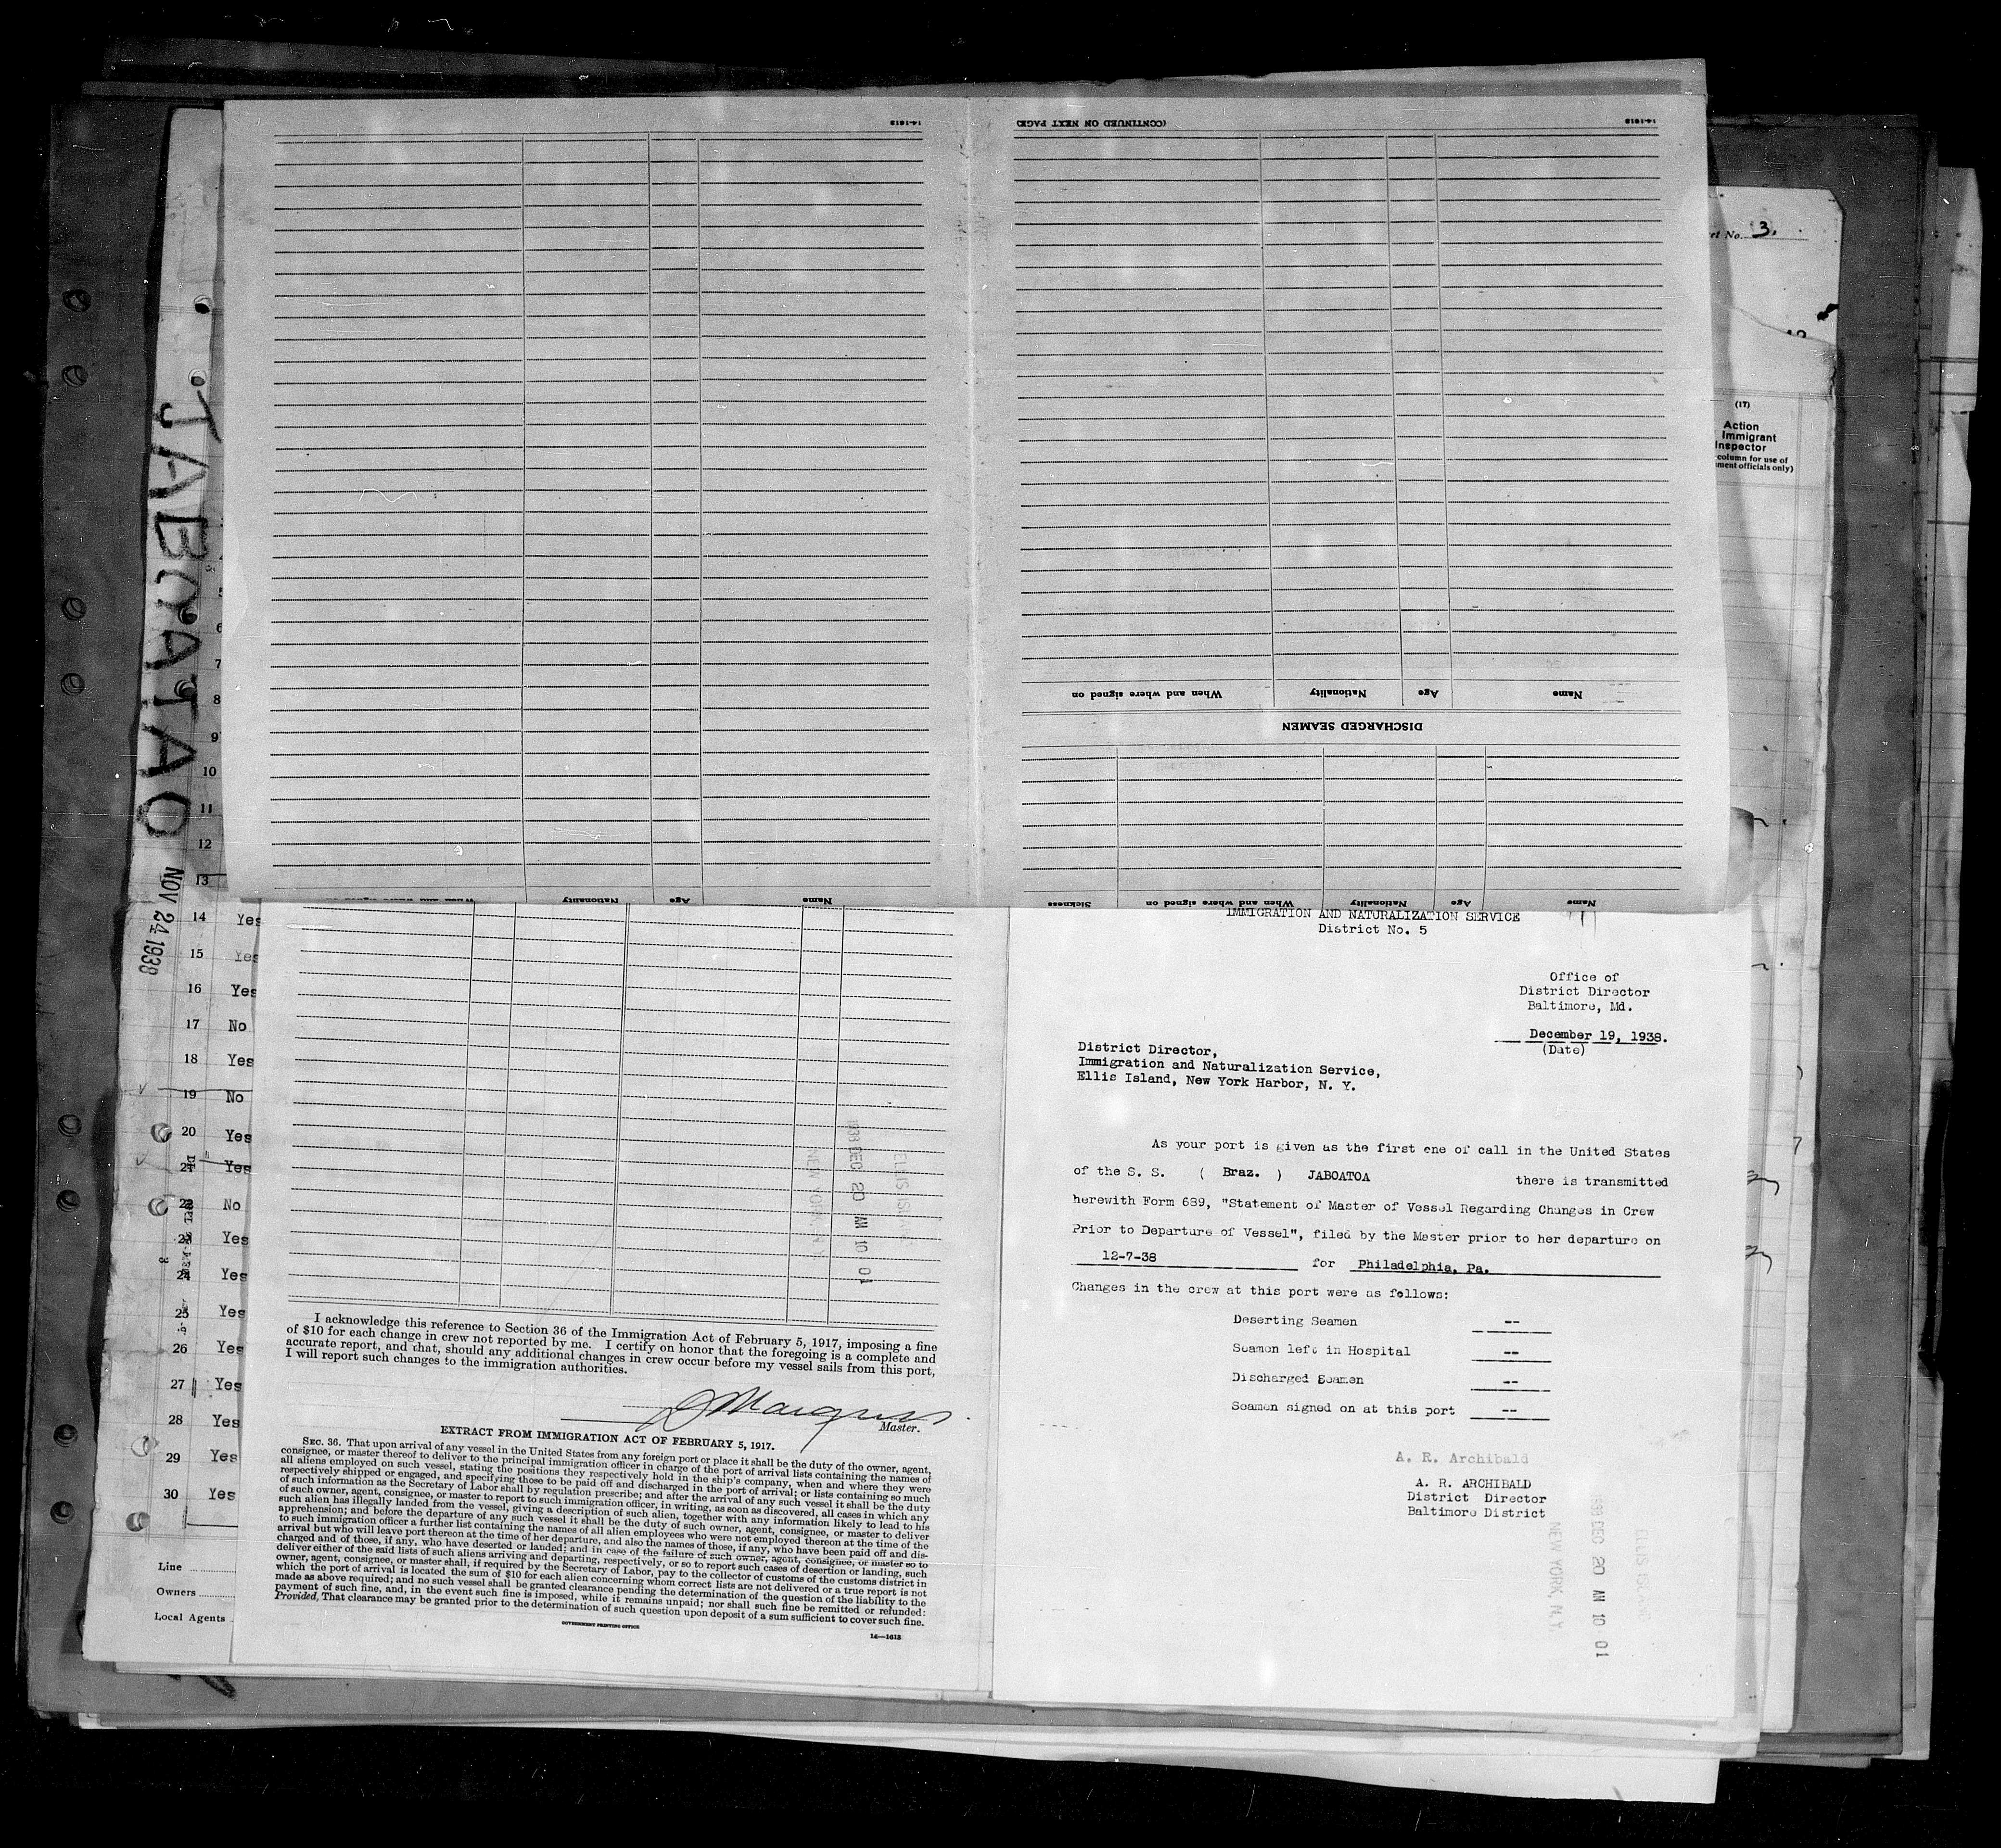 14-1613
(CONTINUED ON NEXT PAGE)
14-1613
When and where signed on
Nationality
Age
Name
DISCHARGED SEAMEN
Nationality
Age
Name
Sickness
When and where signed on
Nationality
Age
Name
JABOATAO
NOV 24 1938
3.
(17)
Action
Immigrant
Inspector
column for use of
officials only)
6
7
8
9
10
11
12
13
14 Yes
15 Yes
16 Yes
17 No
18 Yes
19 No
20 Yes
21 Yes
22 No
23 Yes
24 Yes
25 Yes
26 Yes
27 Yes
28 Yes
29 Yes
30 Yes
Line
Owners
Local Agents
1938 DEC 20 AM 10 01
ELLIS ISLAND
NEW YORK, N.Y.
I acknowledge this reference to Section 36 of the Immigration Act of February 5, 1917, imposing a fine
of $10 for each change in crew not reported by me. I certify on honor that the foregoing is a complete and
accurate report, and that, should any additional changes in crew occur before my vessel sails from this port,
I will report such changes to the immigration authorities.
Master.
EXTRACT FROM IMMIGRATION ACT OF FEBRUARY 5, 1917.
SEC. 36. That upon arrival of any vessel in the United States from any foreign port or place it shall be the duty of the owner, agent,
consignee, or master thereof to deliver to the principal immigration officer in charge of the port of arrival lists containing the names of
all aliens employed on such vessel, stating the positions they respectively hold in the ship's company, when and where they were
respectively shipped or engaged, and specifying those to be paid off and discharged in the port of arrival; or lists containing so much
of such information as the Secretary of Labor shall by regulation prescribe; and after the arrival of any such vessel it shall be the duty
of such owner, agent, consignee, or master to report to such immigration officer, in writing, as soon as discovered, all cases in which any
such alien has illegally landed from the vessel, giving a description of such alien, together with any information likely to lead to his
apprehension; and before the departure of any such vessel it shall be the duty of such owner, agent, consignee, or master to deliver
to such immigration officer a further list containing the names of all alien employees who were not employed thereon at the time of the
arrival but who will leave port thereon at the time of her departure, and also the names of those, if any, who have been paid off and dis-
charged and of those, if any, who have deserted or landed; and in case of the failure of such owner, agent, consignee, or master so to
deliver either of the said lists of such aliens arriving and departing, respectively, or so to report such cases of desertion or landing, such
owner, agent, consignee, or master shall, if required by the Secretary of Labor, pay to the collector of customs of the customs district in
which the port of arrival is located the sum of $10 for each alien concerning whom correct lists are not delivered or a true report is not
made as above required; and no such vessel shall be granted clearance pending the determination of the question of the liability to the
payment of such fine, and, in the event such fine is imposed, while it remains unpaid; nor shall such fine be remitted or refunded:
Provided, That clearance may be granted prior to the determination of such question upon deposit of a sum sufficient to cover such fine.
GOVERNMENT PRINTING OFFICE
14—1613
IMMIGRATION AND NATURALIZATION SERVICE
District No. 5
Office of
District Director
Baltimore, Md.
December 19, 1938.
(Date)
District Director,
Immigration and Naturalization Service,
Ellis Island, New York Harbor, N. Y.
As your port is given as the first one of call in the United States
of the S. S. ( Braz. ) JABOATOA there is transmitted
herewith Form 689, "Statement of Master of Vessel Regarding Changes in Crew
Prior to Departure of Vessel", filed by the Master prior to her departure on
12-7-38 for Philadelphia, Pa.
Changes in the crew at this port were as follows:
Deserting Seamen --
Seamen left in Hospital --
Discharged Seamen --
Seamen signed on at this port --
A. R. Archibald
A. R. ARCHIBALD
District Director
Baltimore District
1938 DEC 20 AM 10 01
ELLIS ISLAND
NEW YORK, N.Y.